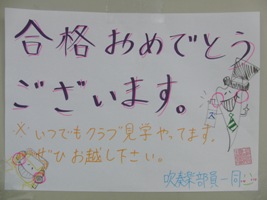 合格おめでとう
ございます。
※いつでもクラブ見学やってます。
ぜひお越し下さい。
吹奏楽部員一同